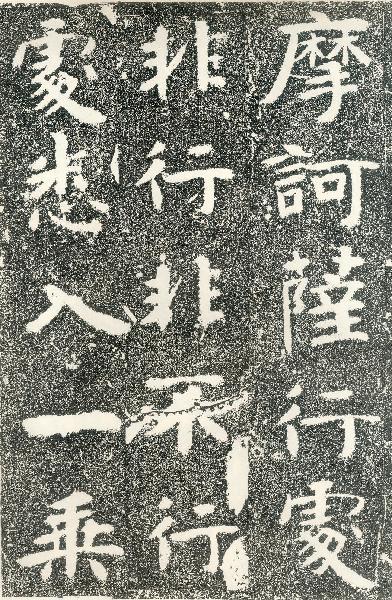 摩訶薩行處
非行非不行
處悉入一乘